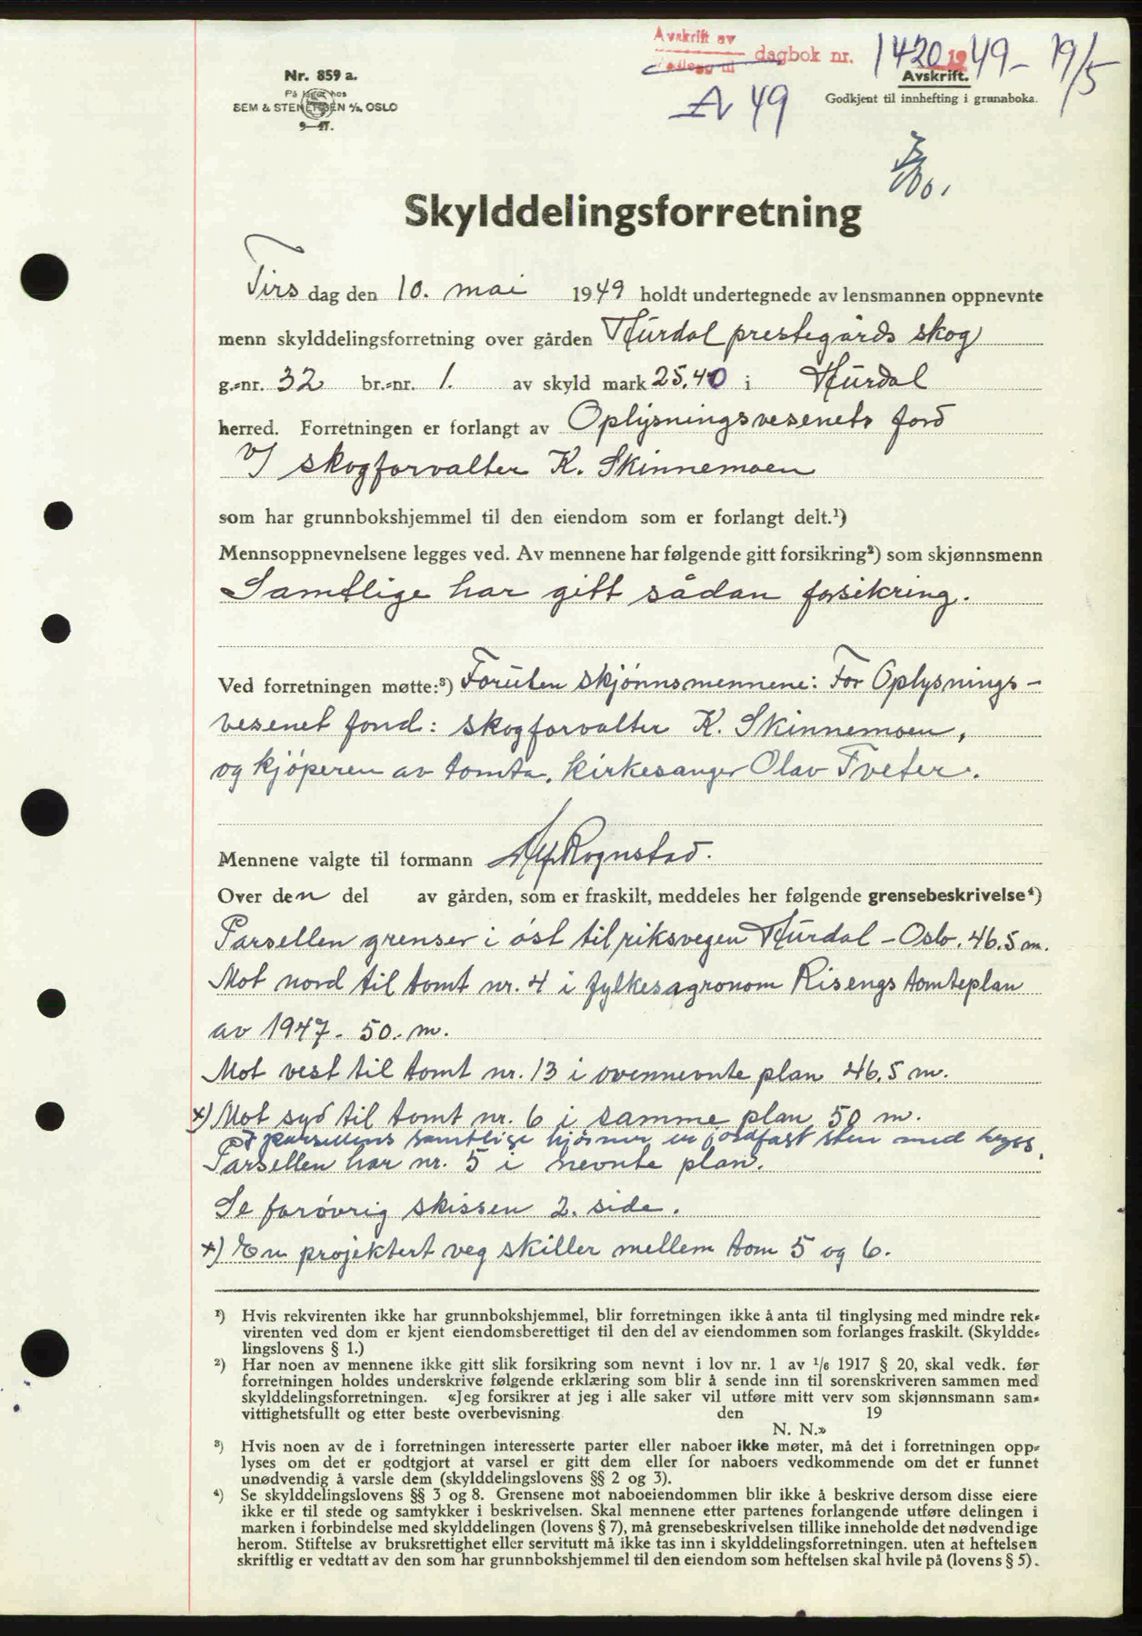 Avskrift av
dagbok nr. 1420 1949 - 19/5
Nr. 859 a.
På lager hos
SEM & STENERSEN A/S, OSLO
9-47.
A 49
Avskrift.
Godkjent til innhefting i grunnboka.
Skylddelingsforretning
Tirs dag den 10. mai 1949 holdt undertegnede av lensmannen oppnevnte
menn skylddelingsforretning over gården Hurdal prestegårds skog
g.-nr. 32 br.-nr. 1. av skyld mark 25,40 i Hurdal
herred. Forretningen er forlangt av Oplysningsvesenets fond
v/ skogforvalter K. Skinnemoen
som har grunnbokshjemmel til den eiendom som er forlangt delt.¹)
Mennsoppnevnelsene legges ved. Av mennene har følgende gitt forsikring²) som skjønnsmenn
Samtlige har gitt sådan forsikring.
Ved forretningen møtte:³) Foruten skjønnsmennene: For Oplysnings-
vesenet fond: skogforvalter K. Skinnemoen,
og kjøperen av tomta, kirkesanger Olav Tveter.
Mennene valgte til formann Alf Rognstad.
Over den del av gården, som er fraskilt, meddeles her følgende grensebeskrivelse⁴)
Parsellen grenser i øst til riksvegen Hurdal - Oslo. 46.5 m.
Mot nord til tomt nr. 4 i fylkesagronom Risengs tomteplan
av 1947 - 50. m.
Mot vest til tomt nr. 13 i ovennevnte plan 46,5 m.
x) Mot syd til tomt nr. 6 i samme plan 50 m.
I parsellens samtlige hjørner er jordfast sten med kryss.
Parsellen har nr. 5 i nevnte plan.
Se forøvrig skissen 2. side.
x) En projektert veg skiller mellem tom 5 og 6.
¹) Hvis rekvirenten ikke har grunnbokshjemmel, blir forretningen ikke å anta til tinglysing med mindre rek-
virenten ved dom er kjent eiendomsberettiget til den del av eiendommen som forlanges fraskilt. (Skyldde-
lingslovens § 1.)
²) Har noen av mennene ikke gitt slik forsikring som nevnt i lov nr. 1 av 1/6 1917 § 20, skal vedk. før
forretningen holdes underskrive følgende erklæring som blir å sende inn til sorenskriveren sammen med
skylddelingsforretningen. «Jeg forsikrer at jeg i alle saker vil utføre mitt verv som skjønnsmann sam-
vittighetsfullt og etter beste overbevisning den 19
N. N.»
³) Hvis noen av de i forretningen interesserte parter eller naboer ikke møter, må det i forretningen opp-
lyses om det er godtgjort at varsel er gitt dem eller for naboers vedkommende om det er funnet
unødvendig å varsle dem (skylddelingslovens §§ 2 og 3).
⁴) Se skylddelingslovens §§ 3 og 8. Grensene mot naboeiendommen blir ikke å beskrive dersom disse eiere
ikke er til stede og samtykker i beskrivelsen. Skal mennene etter partenes forlangende utføre delingen i
marken i forbindelse med skylddelingen (lovens § 7), må grensebeskrivelsen tillike inneholde det nødvendige
herom. Stiftelse av bruksrettighet eller servitutt må ikke tas inn i skylddelingsforretningen. uten at heftelsen
skriftlig er vedtatt av den som har grunnbokshjemmel til den eiendom som heftelsen skal hvile på (lovens § 5).